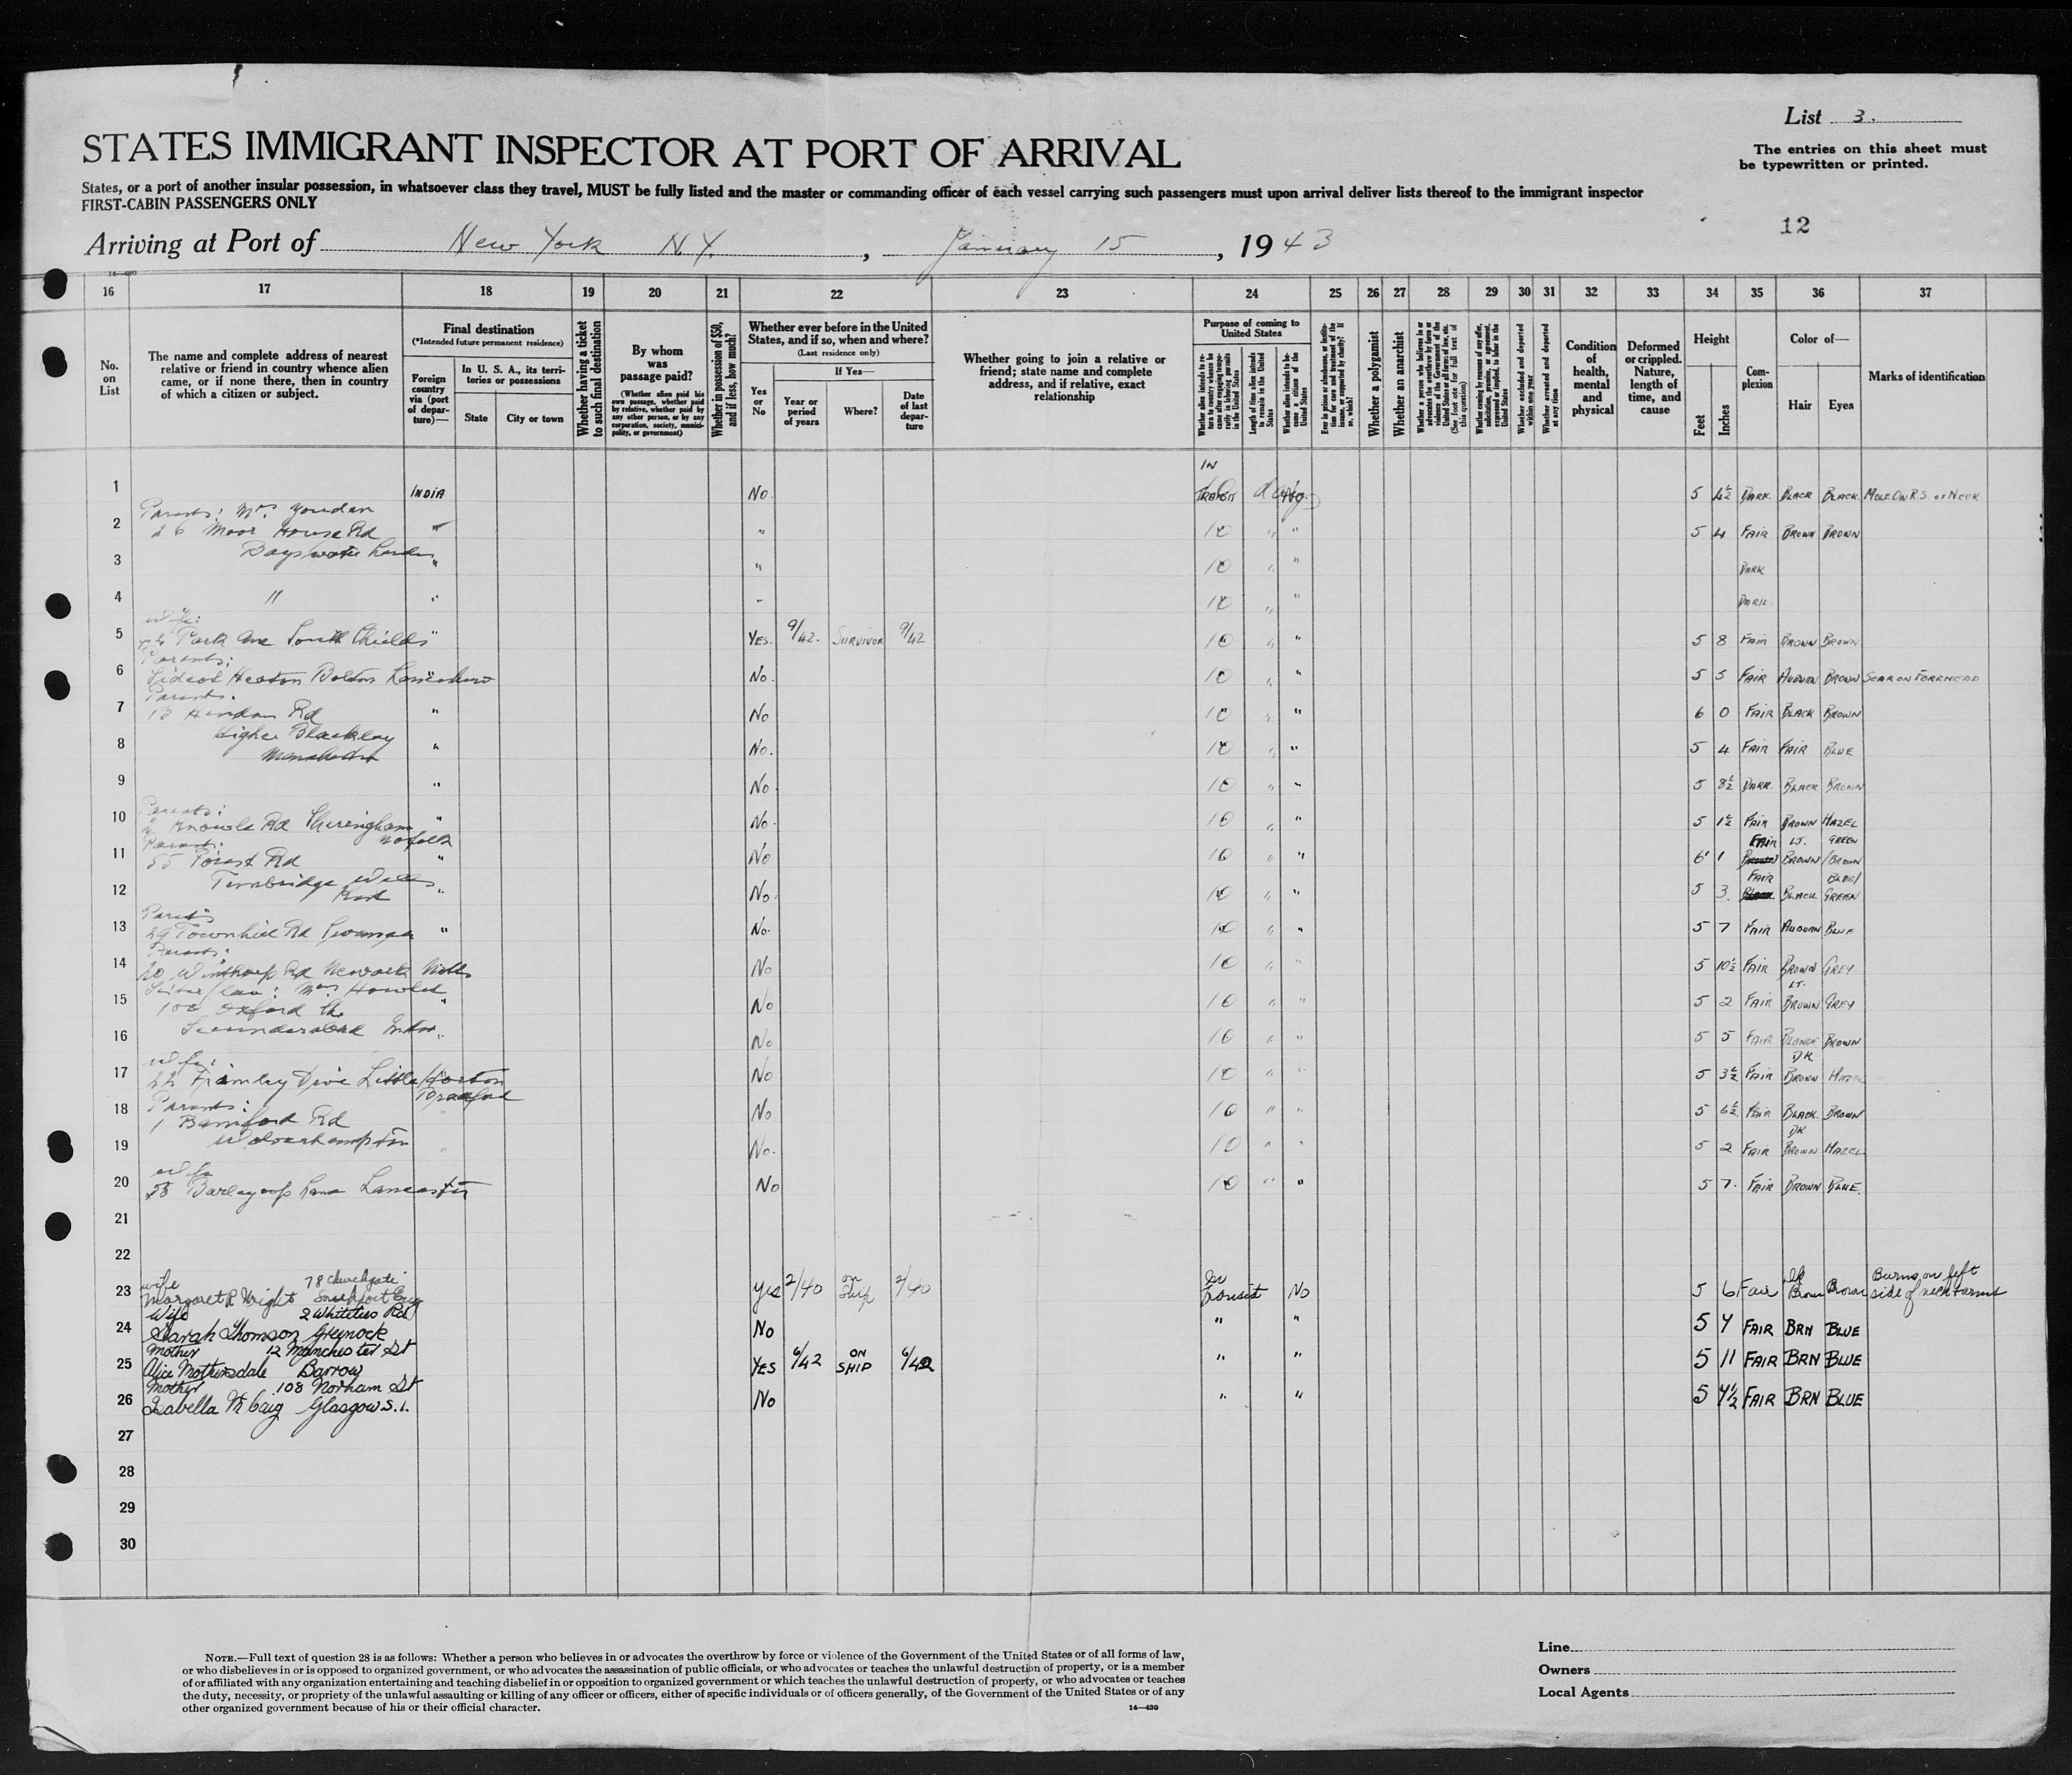 List 3.
STATES IMMIGRANT INSPECTOR AT PORT OF ARRIVAL
The entries on this sheet must
be typewritten or printed.
States, or a port of another insular possession, in whatsoever class they travel, MUST be fully listed and the master or commanding officer of each vessel carrying such passengers must upon arrival deliver lists thereof to the immigrant inspector
FIRST-CABIN PASSENGERS ONLY
12
Arriving at Port of New York N.Y. , January 15 , 1943
16 17 18 19 20 21 22 23 24 25 26 27 28 29 30 31 32 33 34 35 36 37
No. on List
The name and complete address of nearest relative or friend in country whence alien came, or if none there, then in country of which a citizen or subject.
Final destination
(*Intended future permanent residence)
Foreign country via (port of departure)—
In U. S. A., its territories or possessions
State
City or town
Whether having a ticket to such final destination
By whom was passage paid?
(Whether alien paid his own passage, whether paid by relative, whether paid by any other person, or by any corporation, society, municipality, or government)
Whether in possession of $50, and if less, how much?
Whether ever before in the United States, and if so, when and where?
(Last residence only)
Yes or No
If Yes—
Year or period of years
Where?
Date of last departure
Whether going to join a relative or friend; state name and complete address, and if relative, exact relationship
Purpose of coming to United States
Length of time alien intends to remain in the United States
Whether alien intends to become a citizen of the United States
Whether a polygamist
Whether an anarchist
Whether excluded and deported within one year
Whether arrested and deported at any time
Condition of health, mental and physical
Deformed or crippled. Nature, length of time, and cause
Height
Feet
Inches
Complexion
Color of—
Hair
Eyes
Marks of identification
1 INDIA No. IN TRANSIT days 5 4½ DARK BLACK BLACK MOLE ON R.S. OF NECK
Parents: Mrs Youdan
2 26 Moor House Rd " " 10 " " 5 4 FAIR BROWN BROWN
Bayswater London
3 " " 10 " " DARK
4 " " " 10 " " DARK
wife:
5 Park Ave South Shields " YES. 9/42. SURVIVOR 9/42 10 " " 5 8 FAIR BROWN BROWN
Parents:
6 Heaton Bolton " No. 10 " " 5 5 FAIR AUBURN BROWN SCAR ON FOREHEAD
Parents.
7 Rd " No 10 " " 6 0 FAIR BLACK BROWN
Higher Blackley
8 Manchester " No. 10 " " 5 4 FAIR FAIR BLUE
9 " No. 10 " " 5 8½ DARK BLACK BROWN
Parents:
10 Knowle Rd Sheringham " No. 10 " " 5 1½ FAIR BROWN HAZEL
Norfolk
Parents: FAIR LT. GREEN
11 55 Forest Rd " No 10 " " 6 1 BROWN /BROWN
Tunbridge Wells FAIR BLUE/
12 Kent " No. 10 " " 5 3. BLACK GREEN
Parents
13 29 Townhill Rd Swansea " No. 10 " " 5 7 FAIR AUBURN BLUE
Parents:
14 20 Winthorp Rd Newark Notts No 10 " " 5 10½ FAIR BROWN GREY
Sister/law: Mrs LT.
15 100 Oxford " No 10 " " 5 2 FAIR BROWN GREY
16 Secunderabad India " No 10 " " 5 5 FAIR BLONDE BROWN
wife: DK.
17 22 Frimley Drive Little Horton No 10 " " 5 3½ FAIR BROWN HAZEL
Bradford
Parents:
18 1 Bamford Rd No 10 " " 5 6½ FAIR BLACK BROWN
Wolverhampton DK
19 No. 10 " " 5 2 FAIR BROWN HAZEL
wife
20 Lane Lancaster No 10 " " 5 7. FAIR BROWN BLUE.
21
22
wife 78 Churchgate
23 Margaret R Wright Stockport Eng Yes 2/40 on Ship 2/40 In transit No 5 6 Fair DK Brown Brown Burns on left side of neck + arms
Wife 2 Whitelees Rd
24 Sarah Thomson Greenock No " " 5 4 FAIR BRN BLUE
Mother 12 Manchester St
25 Alice Mothersdale Barrow YES 6/42 ON SHIP 6/42 " " 5 11 FAIR BRN BLUE
Mother 108 Norham St
26 Isabella McCaig Glasgow S.1. No " " 5 4½ FAIR BRN BLUE
27
28
29
30
NOTE.—Full text of question 28 is as follows: Whether a person who believes in or advocates the overthrow by force or violence of the Government of the United States or of all forms of law,
or who disbelieves in or is opposed to organized government, or who advocates the assassination of public officials, or who advocates or teaches the unlawful destruction of property, or is a member
of or affiliated with any organization entertaining and teaching disbelief in or opposition to organized government or which teaches the unlawful destruction of property, or who advocates or teaches
the duty, necessity, or propriety of the unlawful assaulting or killing of any officer or officers, either of specific individuals or of officers generally, of the Government of the United States or of any
other organized government because of his or their official character.
14—430
Line
Owners
Local Agents